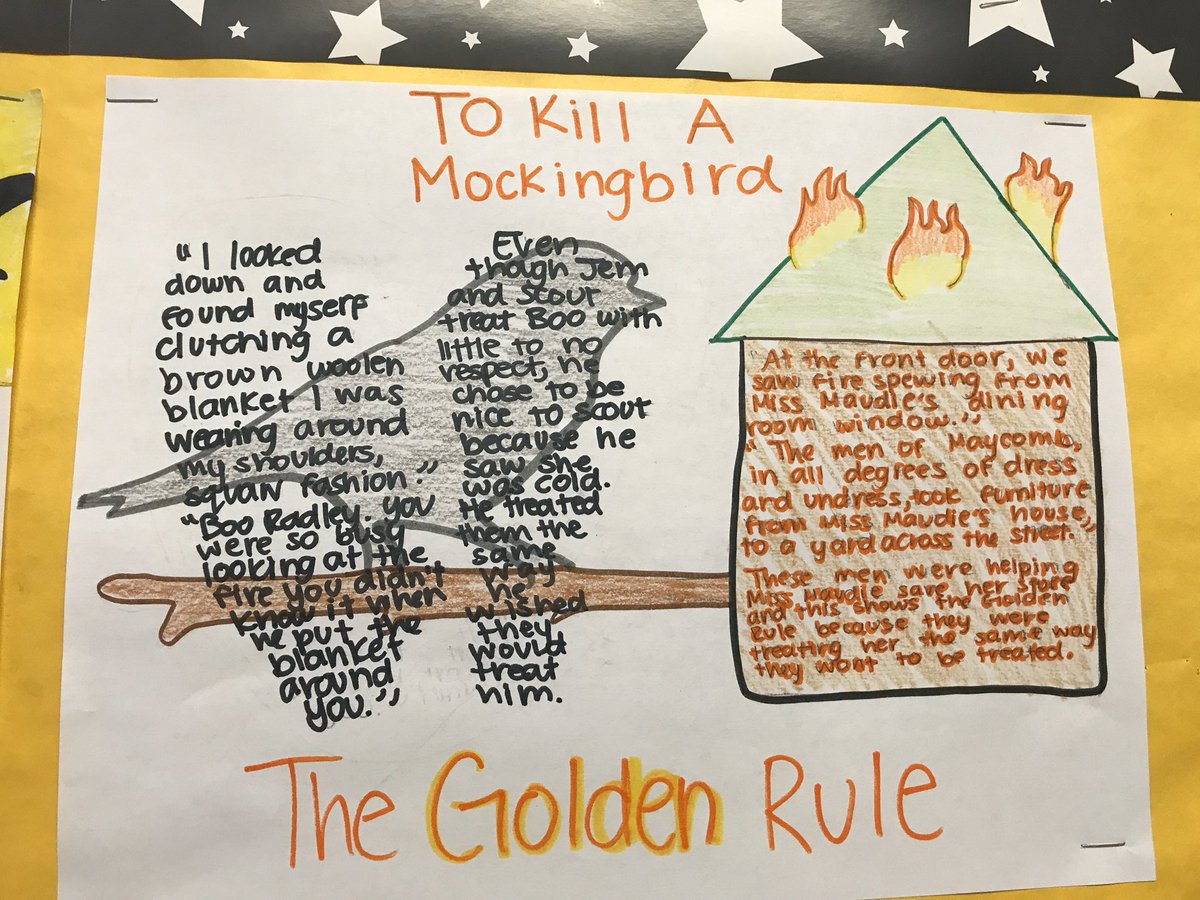 TO Kill A
Mockingbird
"I looked
down and
found myself
clutching a
brown woolen
blanket I was
wearing around
my shoulders,
squaw fashion."
"Boo Radley. You
were so busy
looking at the
fire you didn't
know it when
he put the
blanket
around
you."
Even
though Jem
and Scout
treat Boo with
little to no
respect, he
chose to be
nice to scout
because he
saw she
was cold.
He treated
them the
same
way
he
wished
they
would
treat
him.
"At the front door, we
saw fire spewing from
Miss Maudie's dining
room window."
"The men of Maycomb,
in all degrees of dress
and undress, took furniture
from Miss Maudie's house
to a yard across the street."
These men were helping
Miss Maudie save her stuff
and this shows the Golden
Rule because they were
treating her the same way
they want to be treated.
The Golden Rule